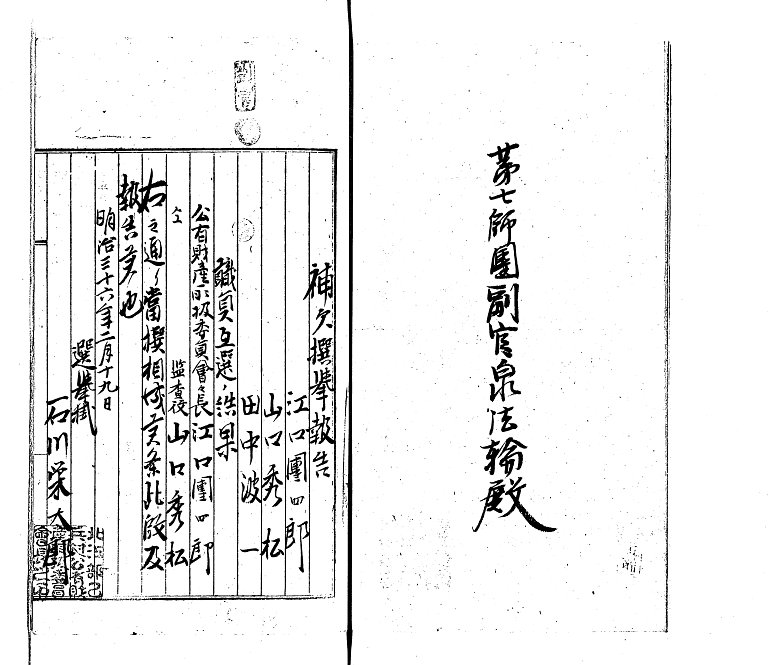 第七師團副官泉法輪殿
補欠撰擧報告
江口團四郎
山口秀松
田中波一
職員互選ノ結果
公有財產取扱委員會々長江口團四郎
仝 監查役山口秀松
右之通リ當撰相成候条此段及
報告候也
明治三十六年二月十九日
選擧掛
石川栄太郎